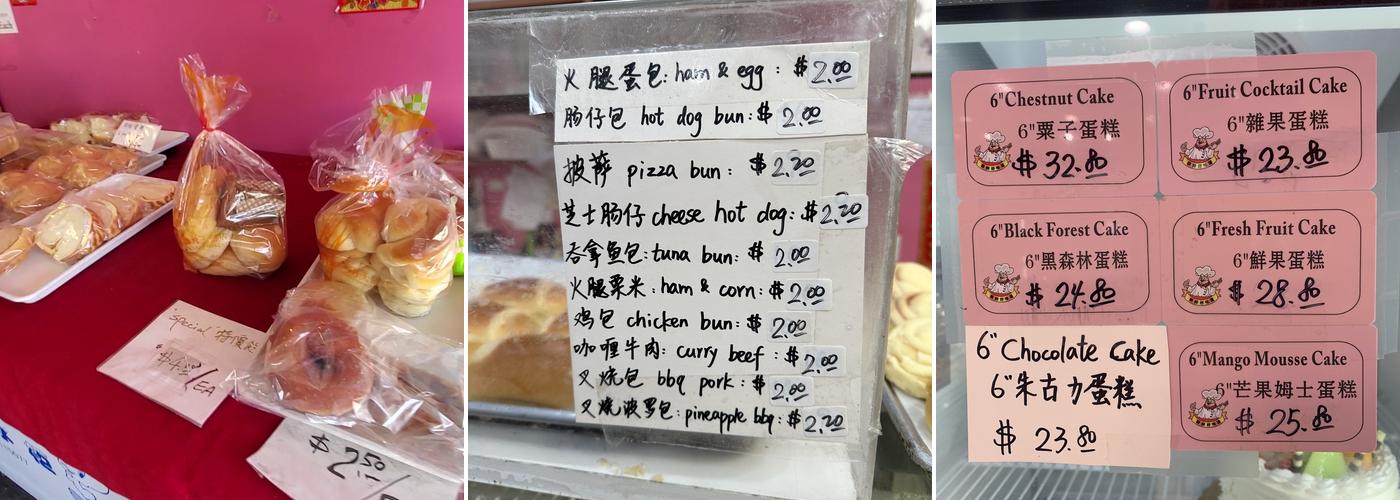 "Special" 特價
$4.50/EA
$2.50
火腿蛋包: ham & egg: $2.00
肠仔包 hot dog bun: $2.00
披萨 pizza bun: $2.20
芝士肠仔 cheese hot dog: $2.20
吞拿鱼包: tuna bun: $2.00
火腿粟米: ham & corn: $2.00
鸡包 chicken bun: $2.00
咖喱牛肉: curry beef: $2.00
叉烧包 bbq pork: $2.00
叉烧波罗包: pineapple bbq: $2.20
6"Chestnut Cake
6"栗子蛋糕
$32.80
6"Fruit Cocktail Cake
6"雜果蛋糕
$23.80
6"Black Forest Cake
6"黑森林蛋糕
$24.80
6"Fresh Fruit Cake
6"鮮果蛋糕
$28.80
6"Chocolate Cake
6"朱古力蛋糕
$23.80
6"Mango Mousse Cake
6"芒果姆士蛋糕
$25.80